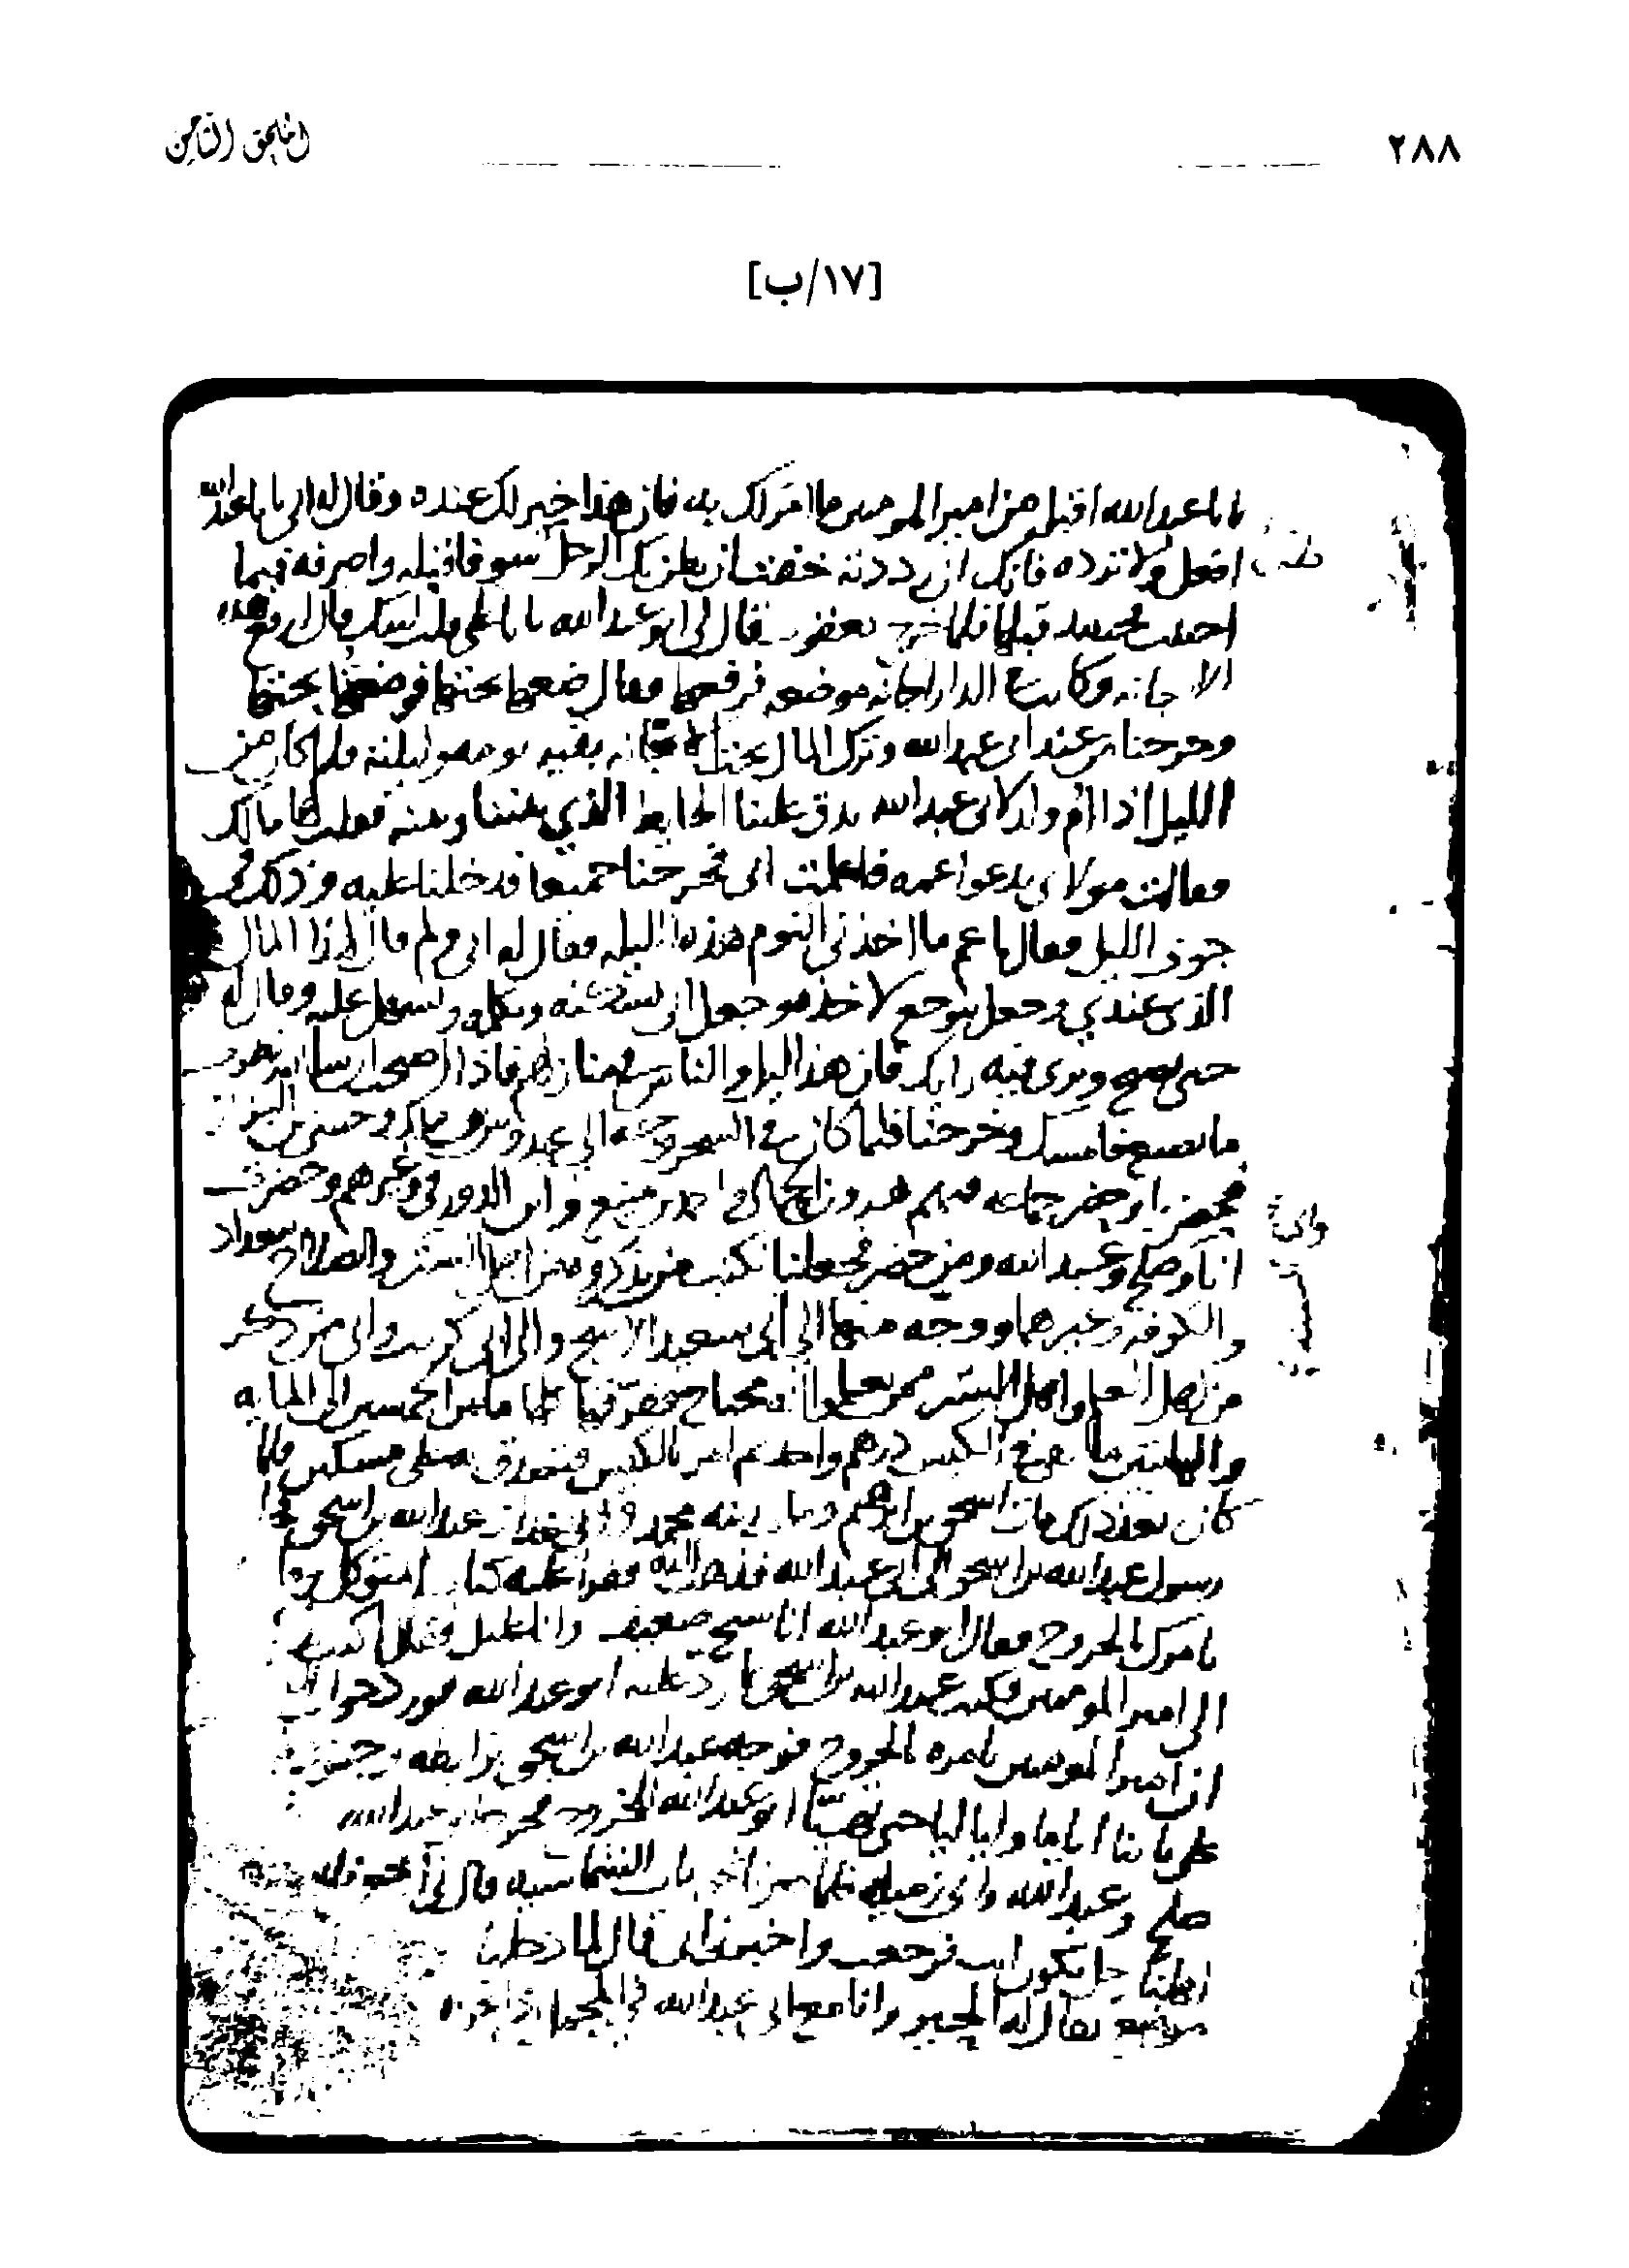 ٢٨٨
الملحق الثامن
[١٧/ب]
يا با عبد الله اقبل من امير المومنين ما امر لك به فان هذا خير لك عنده وقال له ابى يا با عبد الله
افعل ولا ترده فانك ان رددته خفت ان يظن بك الرجل سو فاقبله واصرفه فيما
احببت قبلها فلما خرج يعقوب قال لي ابو عبد الله يا با على قلت لبيك قال ارفع هذه
الاجانه وكانت في الدار اجانه موضوعه فرفعها وقال ضعها تحتها فوضعتها تحتها
وخرجنا من عند ابى عبد الله وترك المال تحت الاجانه بقيه يومه وليلته فلما كان من
الليل اذا ام ولد لابى عبد الله تدق علينا الحايط الذي بيننا وبينه فقلت لها مالك
فقالت مولاى يدعوا عمه فاعلمت ابى فخرجنا جميعا فدخلنا عليه وذلك في
جوف الليل فقال يا عم ما اخذنى النوم هذه الليله فقال له ابى ولم قال لهذا المال
الذى عندي وجعل يتوجع لاخذه وجعل ابى يسكنه ويسهل عليه وقال له
حتى تصبح وترى فيه رايك فان هذا ليل والناس في منازلهم
ما تصنع فامسك وخرجنا فلما كان في السحر وجه الى عبدوس بن مالك وحسن بن البزاز
فحضرا وحضر جماعه منهم هرون الحمال واحمد بن منيع وابن الدورقى وغيرهم وحضرت
انا وصلح وعبد الله ومن حضر فجعلنا نكتب من يذكر من اهل الستر والصلاح ببغداد
والكوفه وغيرهما ووجه منها الى ابى سعيد الاشج والى ابى كريب والى من ذكر
من اهل العلم واهل الستر ممن يعلموا انه محتاج ففرقها كلها ما بين الخمسين الى المايه
والمايتين فما بقى في الكيس درهم واحد ثم امر بالكيس فتصدق به على مسكين فلما
كان بعد ذلك مات اسحق بن ابرهيم ومات ابنه محمد وولى بغداد عبد الله بن اسحق فجا
رسول عبد الله بن اسحق الى ابى عبد الله فذهب اليه فقرا عليه كتاب المتوكل
يامرك بالخروج فقال ابو عبد الله انا شيخ ضعيف وانا عليل فقال اكتب
الى امير المومنين فكتب عبد الله بن اسحق بما رد عليه ابو عبد الله فورد جواب
ان امير المومنين يامره بالخروج فوجه عبد الله بن اسحق برابطه
على بابنا اياما وليالى حتى تهيا ابو عبد الله للخروج فخرج
صلح وعبد الله وابى زميله فلما باب الشماسيه قال لى
ابى فرجعت واخبرنى ابى قال لما
موضع يقال له وانا مع ابى عبد الله في المحمل